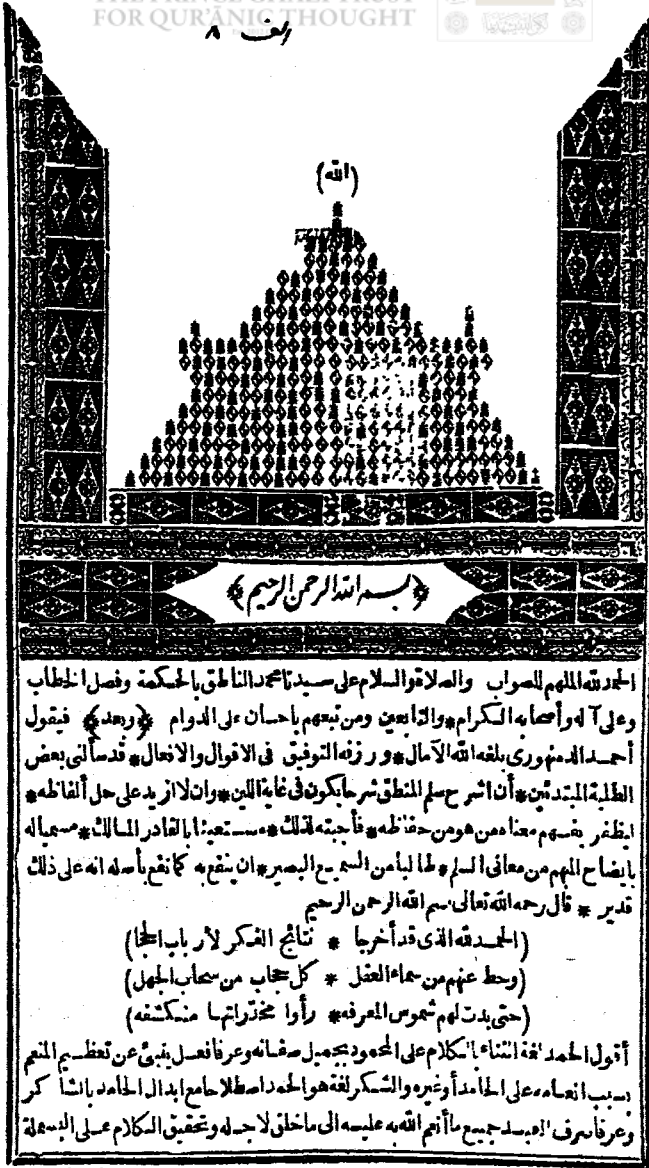 THE PRINCE GHAZI TRUST
FOR QUR'ĀNIC THOUGHT
الف ٨
(الله)
﴿بسم الله الرحمن الرحيم﴾
الحمد لله الملهم للصواب والصلاة والسلام على سيدنا محمد الناطق بالحكمة وفصل الخطاب
وعلى آله وأصحابه الكرام*والتابعين ومن تبعهم باحسان على الدوام ﴿وبعد﴾ فيقول
أحمد الدمنهوري بلغه الله الآمال*ورزقه التوفيق فى الاقوال والافعال*قد سألنى بعض
الطلبة المبتدئين*أن اشرح سلم المنطق شرحا يكون فى غاية اللين*وان لا ازيد على حل ألفاظه*
ليظفر بفهم معناه من هو من حفاظه*فأجبته لذلك*مستعينا بالقادر المالك*مسمياله
بايضاح المبهم من معانى السلم*طالبا من السميع البصير*ان ينفع به كما نفع بأصله انه على ذلك
قدير * قال رحمه الله تعالى بسم الله الرحمن الرحيم
(الحمد لله الذى قد أخرجا * نتائج الفكر لأرباب الحجا)
(وحط عنهم من سماء العقل * كل حجاب من سحاب الجهل)
(حتى بدت لهم شموس المعرفه* رأوا مخدّراتها منكشفه)
أقول الحمد لغة الثناء بالكلام على المحمود بجميل صفاته وعرفا فعل ينبئ عن تعظيم المنعم
بسبب انعامه على الحامد أو غيره والشكر لغة هو الحمد اصطلاحا مع ابدال الحامد بالشاكر
وعرفا صرف العبد جميع ما أنعم الله به عليه الى ما خلق لاجله وتحقيق الكلام على البسملة